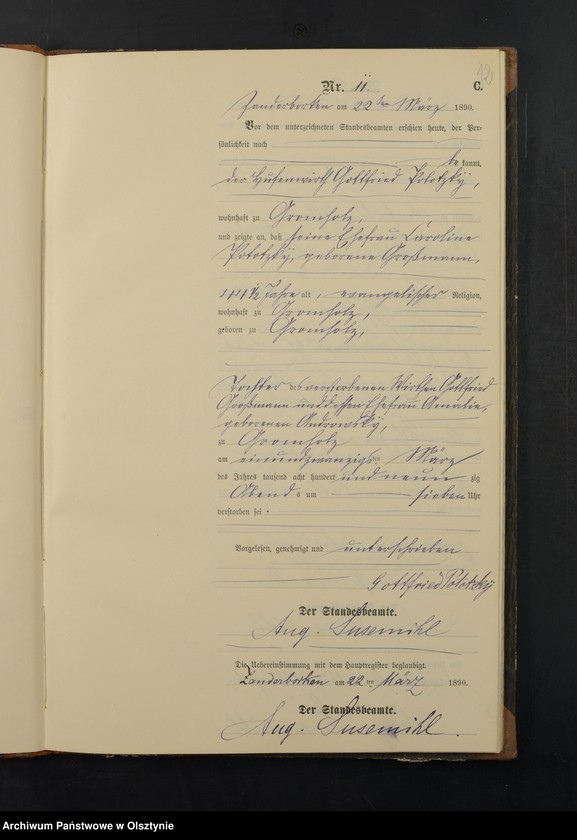 12
Nr. 11. C.
Zanderborken am 22ten März 1890.
Vor dem unterzeichneten Standesbeamten erschien heute, der Per-
sönlichkeit nach
be kannt,
der Hufenwirth Gottfried Pototzky,
wohnhaft zu Gromholz,
und zeigte an, daß seine Ehefrau Caroline
Pototzky, geborene Großmann,
44 1/2 Jahre alt, evangelischer Religion,
wohnhaft zu Gromholz,
geboren zu Gromholz,
Tochter des verstorbenen Wirthen Gottfried
Großmann und dessen Ehefrau Amalie,
geborenen Androwsky,
zu Gromholz
am einundzwanzigsten März
des Jahres tausend acht hundert und neun zig
Abends um sieben Uhr
verstorben sei.
Vorgelesen, genehmigt und unterschrieben
Gottfried Pototzky
Der Standesbeamte.
Aug. Susemihl
Die Uebereinstimmung mit dem Hauptregister beglaubigt.
Zanderborken am 22ten März 1890.
Der Standesbeamte.
Aug. Susemihl.
Archiwum Państwowe w Olsztynie